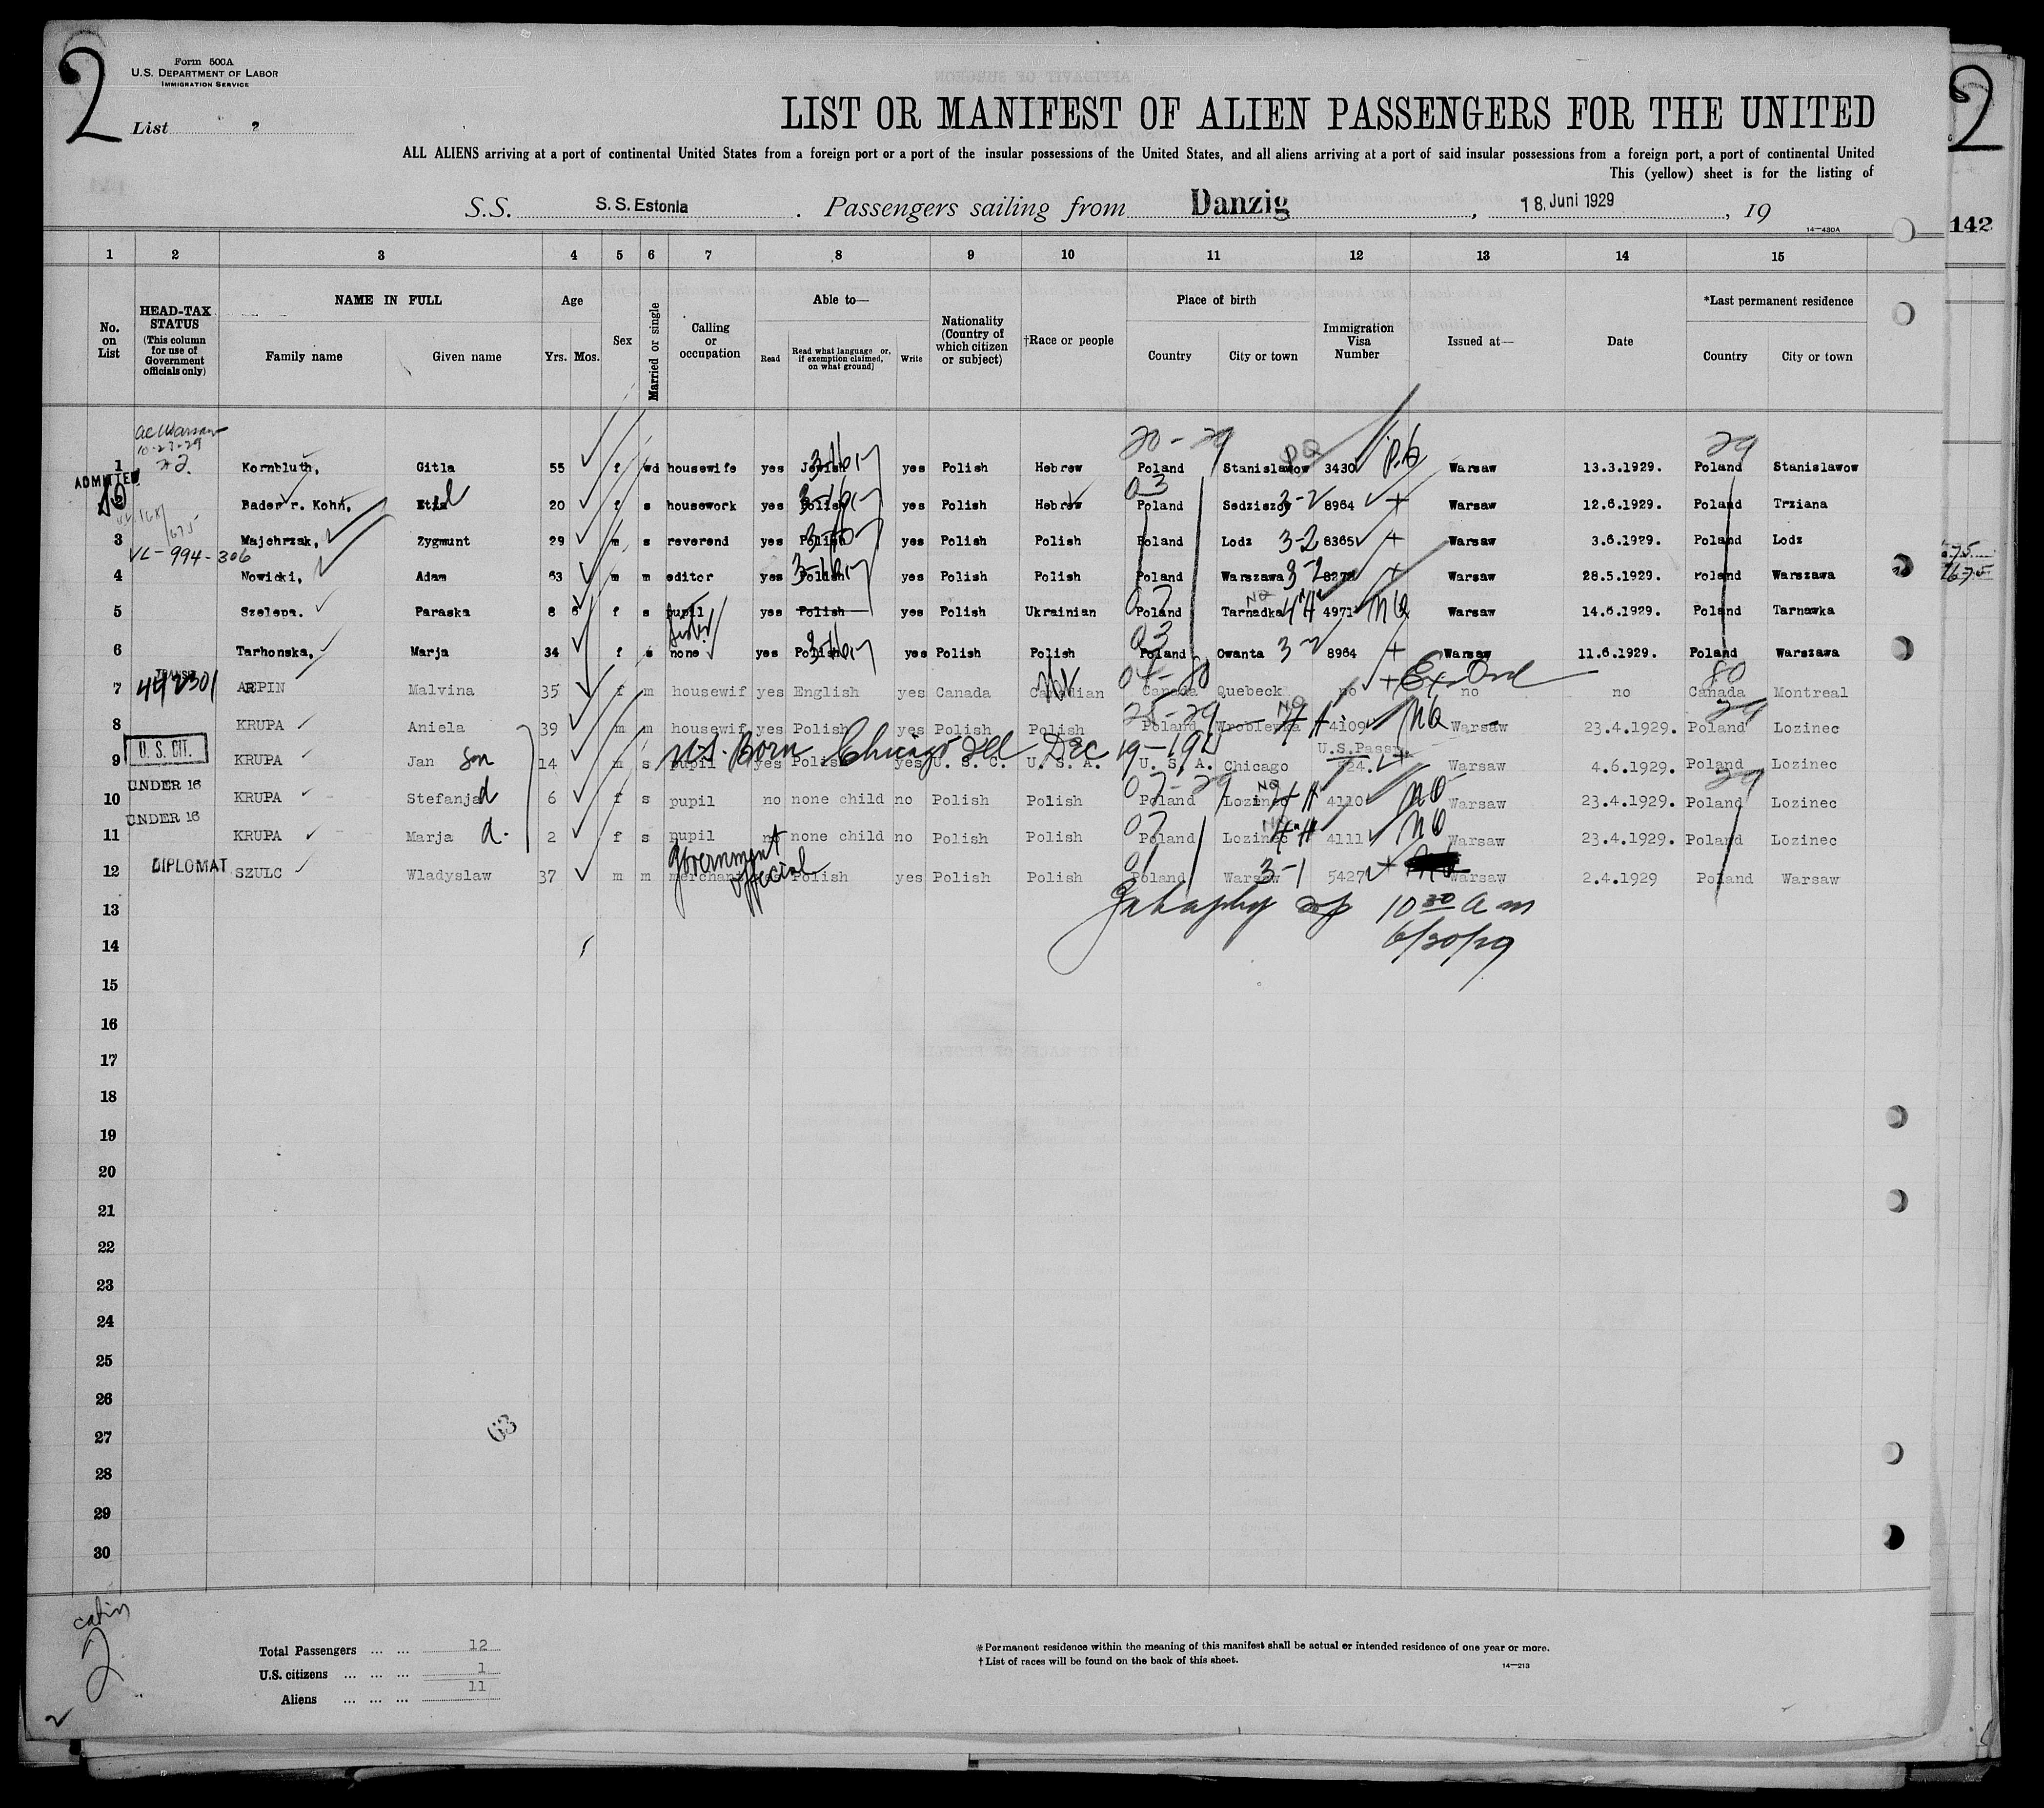 2
Form 500A
U.S. DEPARTMENT OF LABOR
IMMIGRATION SERVICE
List 2
LIST OR MANIFEST OF ALIEN PASSENGERS FOR THE UNITED
ALL ALIENS arriving at a port of continental United States from a foreign port or a port of the insular possessions of the United States, and all aliens arriving at a port of said insular possessions from a foreign port, a port of continental United
This (yellow) sheet is for the listing of
S.S. S.S. Estonia. Passengers sailing from Danzig, 18. Juni 1929, 19
14—430A
142
1 2 3 4 5 6 7 8 9 10 11 12 13 14 15
No. on List
HEAD-TAX STATUS (This column for use of Government officials only)
NAME IN FULL Family name Given name
Age Yrs. Mos.
Sex
Married or single
Calling or occupation
Able to— Read Read what language or, if exemption claimed, on what ground] Write
Nationality (Country of which citizen or subject)
†Race or people
Place of birth Country City or town
Immigration Visa Number
Issued at—
Date
*Last permanent residence Country City or town
10-23-29
20-29 PQ P.Q 29
1 Kornbluth, Gitla 55 f wd housewife yes Jewish yes Polish Hebrew Poland Stanislawow 3430 Warsaw 13.3.1929. Poland Stanislawow
ADMITTED
03
Bader r. Kohn, Etla 20 f s housework yes Polish yes Polish Hebrew Poland Sedziszow 3-2 8964 + Warsaw 12.6.1929. Poland Trziana
3 Majchrzak, Zygmunt 29 m s reverend yes Polish yes Polish Polish Poland Lodz 3-2 8365 + Warsaw 3.6.1929. Poland Lodz
VL-994-306
4 Nowicki, Adam 63 m m editor yes Polish yes Polish Polish Poland Warszawa 3-2 + Warsaw 28.5.1929. Poland Warszawa
5 Szelepa. Paraska 8 6 f s pupil yes Polish yes Polish Ukrainian Poland Tarnadka 4971 NQ Warsaw 14.6.1929. Poland Tarnawka
03
6 Tarhonska, Marja 34 f s none yes Polish yes Polish Polish Poland Owanta 3-2 8964 + Warsaw 11.6.1929. Poland Warszawa
TRANSIT
04-80 80
7 ARPIN Malvina 35 f m housewif yes English yes Canada Canadian Canada Quebeck no + no no Canada Montreal
25-29 NQ 29
8 KRUPA Aniela 39 m m housewif yes Polish yes Polish Polish Poland Wroblewka 4109 NQ Warsaw 23.4.1929. Poland Lozinec
U. S. CIT.
U.S. Born Chicago Ill Dec 19-191
U.S.Passp.
9 KRUPA Jan son 14 m s pupil yes Polish yes U. S. C. U. S. A. U. S. A. Chicago 924. Warsaw 4.6.1929. Poland Lozinec
UNDER 16
07-29 NQ 29
10 KRUPA Stefanja d 6 f s pupil no none child no Polish Polish Poland Lozinec 4110 NQ Warsaw 23.4.1929. Poland Lozinec
UNDER 16
07 NQ
11 KRUPA Marja d. 2 f s pupil no none child no Polish Polish Poland Lozinec 4111 NQ Warsaw 23.4.1929. Poland Lozinec
DIPLOMAT
Government official
01
12 SZULC Wladyslaw 37 m m merchant yes Polish yes Polish Polish Poland Warsaw 3-1 5427 + Warsaw 2.4.1929 Poland Warsaw
10 30 a m
6/30/29
13
14
15
16
17
18
19
20
21
22
23
24
25
26
27
28
29
30
63
cabin
2
Total Passengers ... ... 12
U.S. citizens ... ... ... 1
Aliens ... ... ... 11
*Permanent residence within the meaning of this manifest shall be actual or intended residence of one year or more.
†List of races will be found on the back of this sheet.
14—213
2